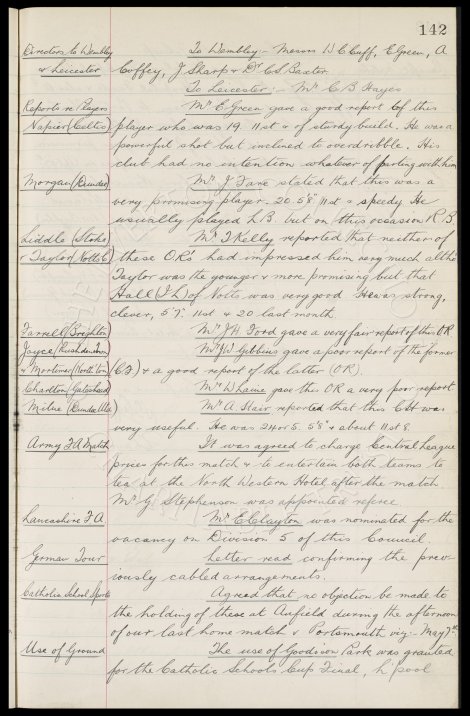 142
Directors to Wembley To Wembley:- Messrs W C Cuff, E Green, A
& Leicester Coffey, J Sharp & Dr C S Baxter.
To Leicester:- Mr C B Hayes
Reports re Players Mr E Green gave a good report of this
Napier (Celtic) player who was 19 11st & of sturdy build. He was a
powerful shot but inclined to overdribble. His
club had no intention whatever of parting with him
Morgan (Dundee) Mr J Fare stated that this was a
very promising player. 20. 5'8" 11st & speedy. He
usually played L.B. but on this occasion R.B.
Liddle (Stoke) Mr T Kelly reported that neither of
& Taylor (Notts Co) these OR's had impressed him very much altho'
Taylor was the younger & more promising but that
Hall (I L) of Notts was very good. He was strong,
clever, 5'7" 11st & 20 last month.
Farrell (Brighton) Mr J H Ford gave a very fair report of this OR
Joyce (Rushden Town) Mr J W Gibbins gave a poor report of the former
& Mortimer (North'ton) (CF) & a good report of the latter (OR).
Charlton (Gateshead) Mr W Lawie gave this OR a very poor report.
Milne (Dundee Utd) Mr A. Stair reported that this CH was
very useful. He was 24 or 5. 5'8" & about 11st 8.
Army F A Match It was agreed to charge Central League
prices for this match & to entertain both teams to
tea at the North Western Hotel after the match.
Mr G Stephenson was appointed referee.
Lancashire F A. Mr E Clayton was nominated for the
vacancy on Division 5 of this Council.
German Tour Letter read confirming the prev-
iously cabled arrangements.
Catholic School Sports Agreed that no objection be made to
the holding of these at Anfield during the afternoon
of our last home match v Portsmouth viz:- May 7th
Use of Ground The use of Goodison Park was granted
for the Catholic Schools Cup Final, L'pool